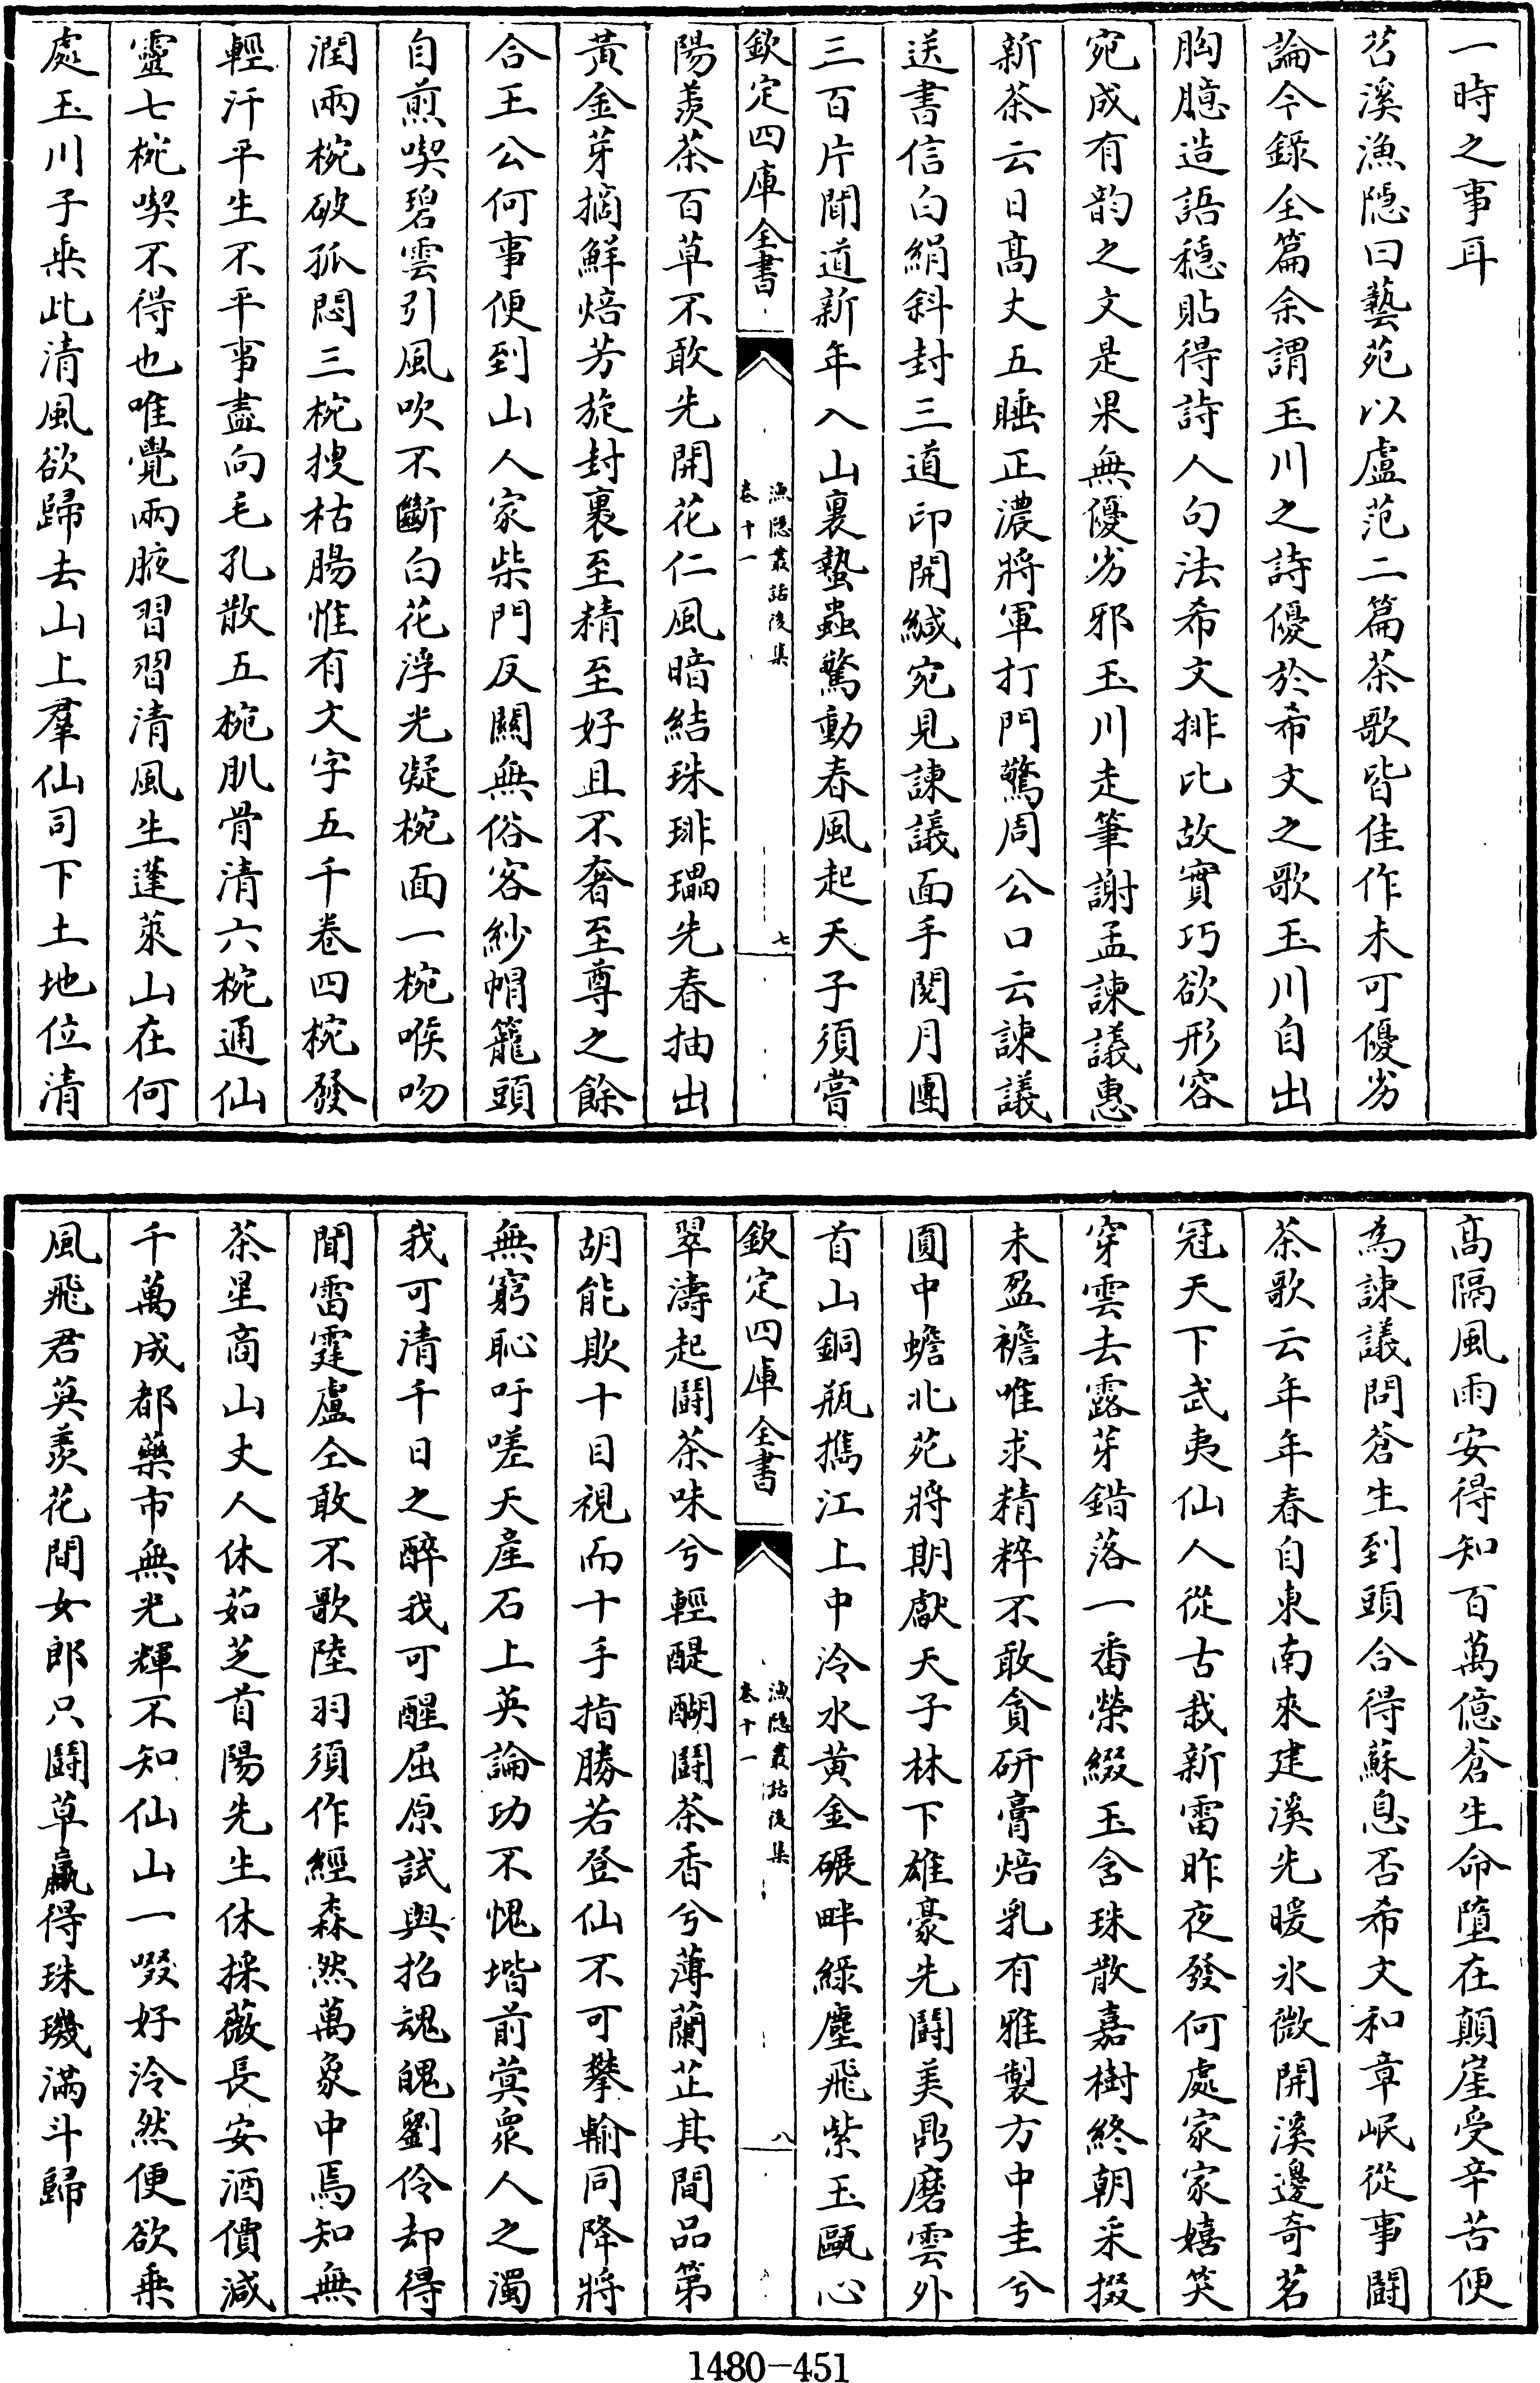 一時之事耳
苕溪漁隱曰藝苑以盧范二篇茶歌皆佳作未可優劣
論今錄全篇余謂玉川之詩優於希文之歌玉川自出
胸臆造語穩貼得詩人句法希文排比故實巧欲形容
宛成有韵之文是果無優劣邪玉川走筆謝孟諫議惠
新茶云日髙丈五睡正濃將軍打門驚周公口云諫議
送書信白絹斜封三道印開緘宛見諫議面手閱月團
三百片聞道新年入山裏蟄蟲驚動春風起天子須嘗
欽定四庫全書
漁隱叢話後集
卷十一
七
陽羨茶百草不敢先開花仁風暗結珠琲瓃先春抽出
黃金芽摘鮮焙芳旋封裹至精至好且不奢至尊之餘
合王公何事便到山人家柴門反關無俗客紗帽籠頭
自煎喫碧雲引風吹不斷白花浮光凝椀面一椀喉吻
潤兩椀破孤悶三椀搜枯腸惟有文字五千卷四椀發
輕汗平生不平事盡向毛孔散五椀肌骨清六椀通仙
靈七椀喫不得也唯覺兩腋習習清風生蓬萊山在何
處玉川子乘此清風欲歸去山上羣仙司下土地位清
髙隔風雨安得知百萬億蒼生命墮在顛崖受辛苦便
為諫議問蒼生到頭合得蘇息否希文和章岷從事鬭
茶歌云年年春自東南來建溪先暖氷微開溪邊奇茗
冠天下武夷仙人從古栽新雷昨夜發何處家家嬉笑
穿雲去露芽錯落一番榮綴玉含珠散嘉樹終朝采掇
未盈襜唯求精粹不敢貪研膏焙乳有雅製方中圭兮
圓中蟾北苑將期獻天子林下雄豪先鬭美鼎磨雲外
首山銅瓶攜江上中泠水黃金碾畔綠塵飛紫玉甌心
欽定四庫全書
漁隱叢話後集
卷十一
八
翠濤起鬭茶味兮輕醍醐鬭茶香兮薄蘭芷其間品第
胡能欺十目視而十手指勝若登仙不可攀輸同降將
無窮恥吁嗟天產石上英論功不愧堦前蓂衆人之濁
我可清千日之醉我可醒屈原試與招魂魄劉伶却得
聞雷霆盧仝敢不歌陸羽須作經森然萬象中焉知無
茶星商山丈人休茹芝首陽先生休採薇長安酒價減
千萬成都藥市無光輝不知仙山一啜好泠然便欲乗
風飛君莫羨花間女郎只鬭草贏得珠璣滿斗歸
1480-451